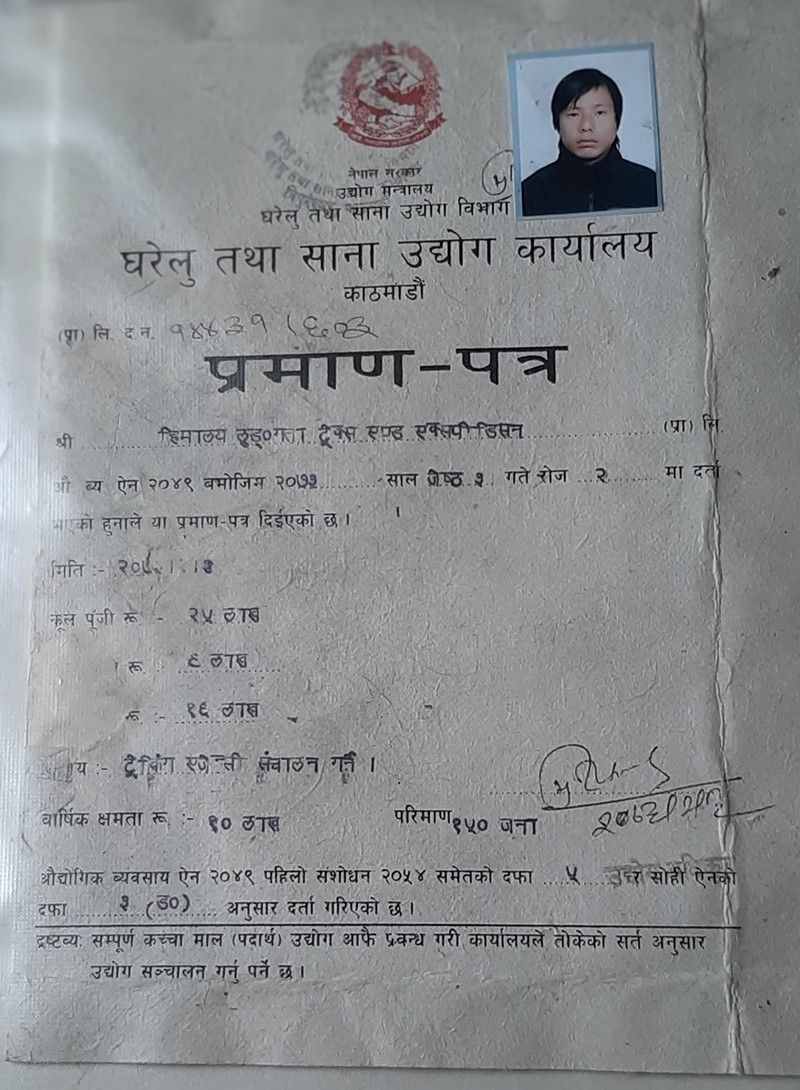 नेपाल सरकार
उद्योग मन्त्रालय
घरेलु तथा साना उद्योग विभाग
घरेलु तथा साना उद्योग कार्यालय
काठमाडौं
(प्रा) लि. द न.
प्रमाण-पत्र
श्री हिमालय ट्रेक्स एण्ड एक्सपीडिसन (प्रा) लि.
औ व्य ऐन २०४९ बमोजिम साल जेष्ठ ३ गते रोज २ मा दर्ता
भएको हुनाले या प्रमाण-पत्र दिईएको छ ।
मिति :-
कूल पूंजी रू :- २५ लाख
रू :- ६ लाख
रू :- १६ लाख
ट्रेकिंग एजेन्सी संचालन गर्ने ।
वार्षिक क्षमता रू :- १० लाख परिमाण १५० जना
औद्योगिक व्यवसाय ऐन २०४९ पहिलो संशोधन २०५४ समेतको दफा ५ सोही ऐनको
दफा ३ (ङ०) अनुसार दर्ता गरिएको छ ।
द्रष्टव्यः सम्पूर्ण कच्चा माल (पदार्थ) उद्योग आफै प्रवन्ध गरी कार्यालयले तोकेको सर्त अनुसार
उद्योग सञ्चालन गर्नु पर्ने छ ।